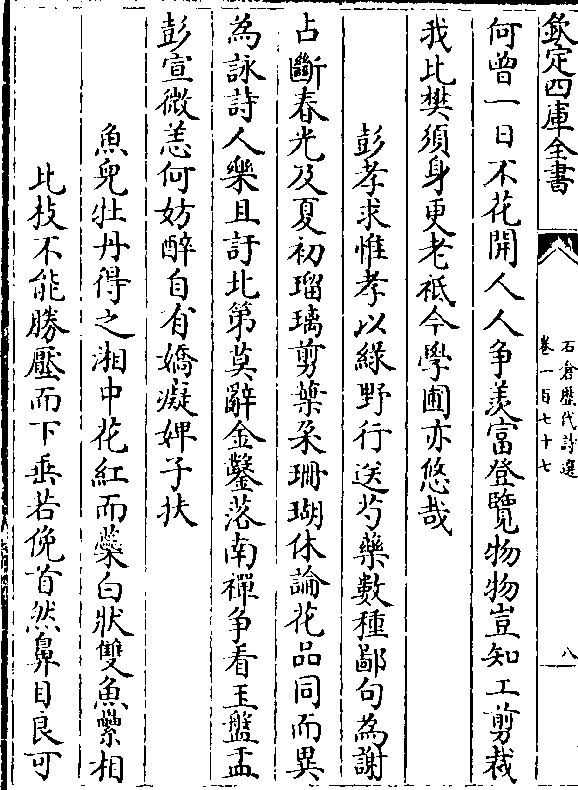 欽定四庫全書
石倉歷代詩選
卷一百七十七
八
何曾一日不花開人人争羨富登覽物物豈知工剪裁
我比樊須身更老祗今學圃亦悠哉
彭孝求惟孝以綠野行送芍藥數種鄙句為謝
占斷春光及夏初瑠璃剪葉朶珊瑚休論花品同而異
為詠詩人樂且訏北第莫辭金鑿落南禪争看玉盤盂
彭宣微恙何妨醉自有嬌癡婢子扶
魚兒牡丹得之湘中花紅而蘂白狀雙魚纍相
比枝不能勝壓而下垂若俛首然鼻目良可